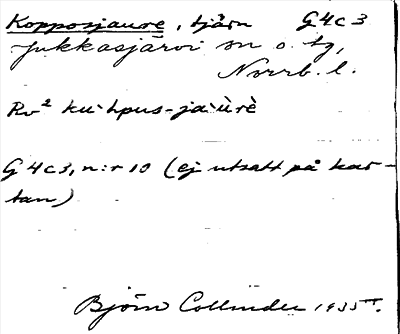 Kopposjaure, tjärn G4c3
Jukkasjärvi sn o. tg,
Norrb. l.
Rv² ku·hpus-ja·ùrè
G4c3, n:r 10 (ej utsatt på kar-
tan)
Björn Collinder 1935